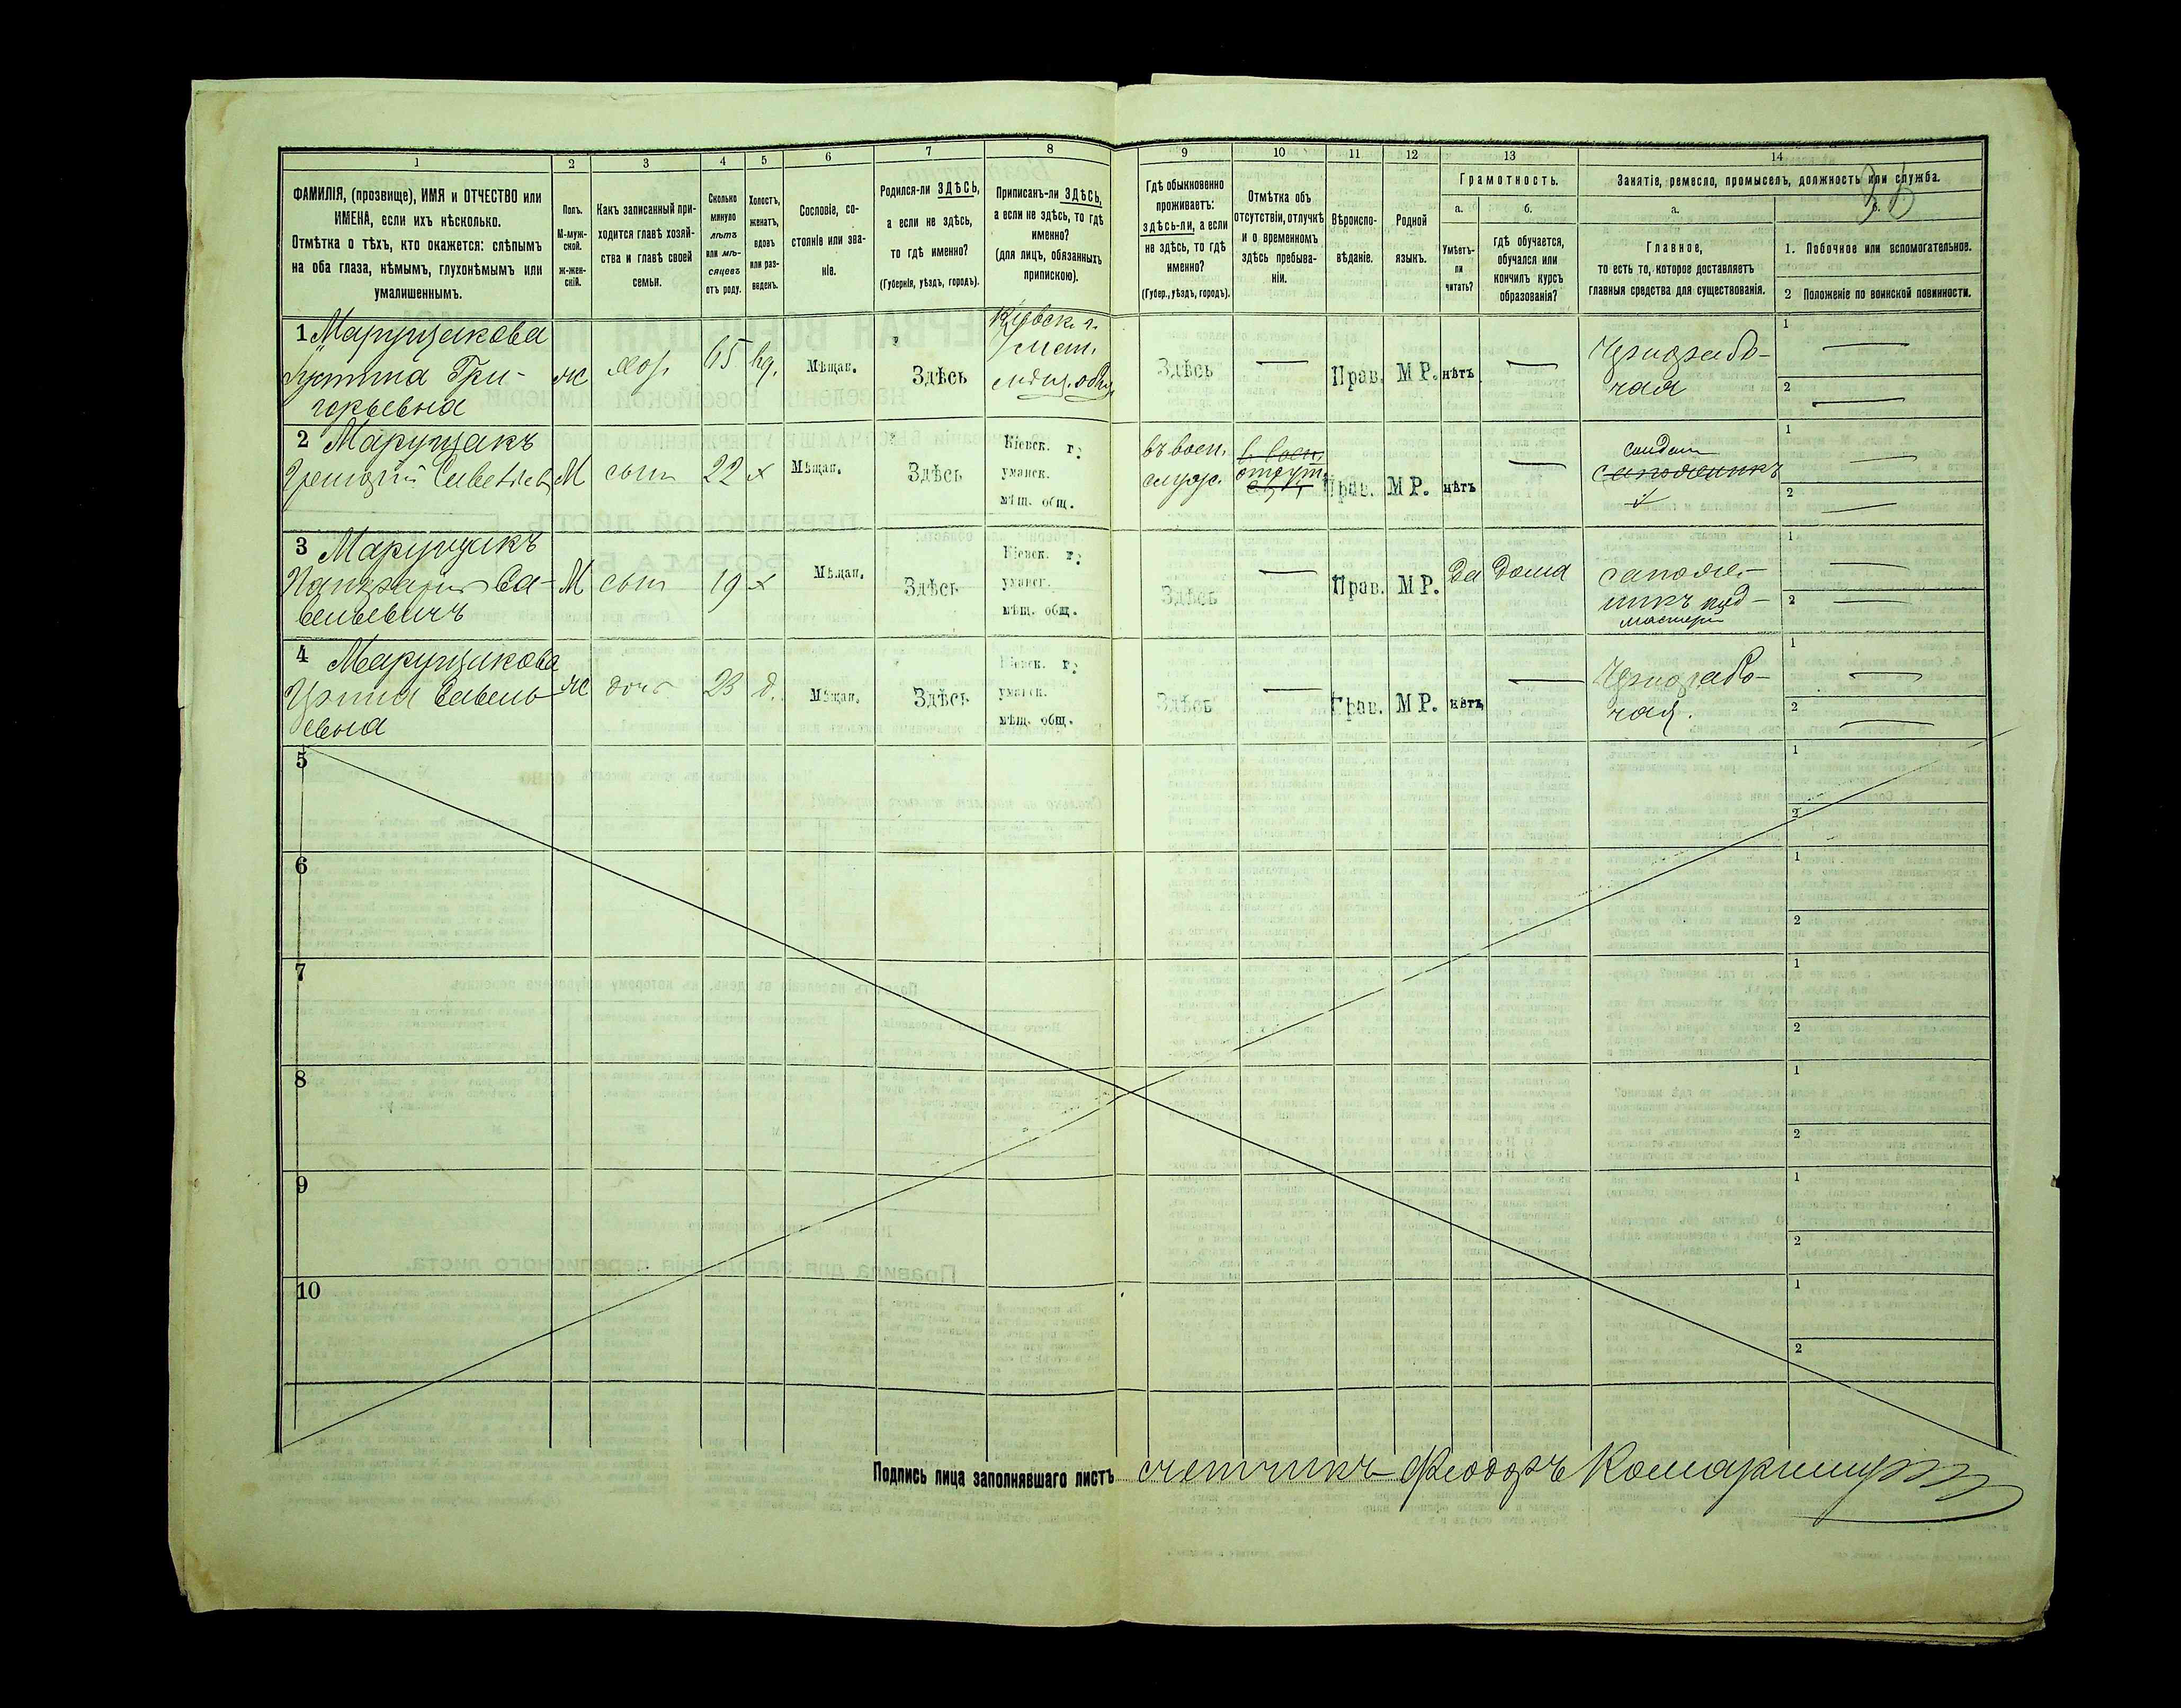 1 2 3 4 5 6 7 8 9 10 11 12 13 14
ФАМИЛІЯ, (прозвище), ИМЯ и ОТЧЕСТВО или
ИМЕНА, если ихъ нѣсколько.
Отмѣтка о тѣхъ, кто окажется: слѣпымъ
на оба глаза, нѣмымъ, глухонѣмымъ или
умалишеннымъ.
Полъ.
М-муж-
ской.
ж-жен-
скій.
Какъ записанный при-
ходится главѣ хозяй-
ства и главѣ своей
семьи.
Сколько
минуло
лѣтъ
или мѣ-
сяцевъ
отъ роду.
Холостъ,
женатъ,
вдовъ
или раз-
веденъ.
Сословіе, со-
стояніе или зва-
ніе.
Родился-ли ЗДѢСЬ,
а если не здѣсь,
то гдѣ именно?
(Губернія, уѣздъ, городъ).
Приписанъ-ли ЗДѢСЬ,
а если не здѣсь, то гдѣ
именно?
(для лицъ, обязанныхъ
припискою).
Гдѣ обыкновенно
проживаетъ:
здѣсь-ли, а если
не здѣсь, то гдѣ
именно?
(Губер., уѣздъ, городъ).
Отмѣтка объ
отсутствіи, отлучкѣ
и о временномъ
здѣсь пребыва-
ніи.
Вѣроиспо-
вѣданіе.
Родной
языкъ.
Грамотность.
а.
Умѣетъ-
ли
читать?
б.
гдѣ обучается,
обучался или
кончилъ курсъ
образованія?
Занятіе, ремесло, промыселъ, должность или служба.
а.
Главное,
то есть то, которое доставляетъ
главныя средства для существованія.
б.
1. Побочное или вспомогательное.
2 Положеніе по воинской повинности.
1 Марущакова
Устина Гри-
горьевна
ж хоз. 65 вд. Мѣщан. Здѣсь
Кіевск. г.
Уман.
мѣщ. общ.
Здѣсь — Прав. М Р. нѣтъ —
Чернорабо-
чая
1 —
2 —
2 Марущакъ
М сынъ 22 х Мѣщан. Здѣсь
Кіевск. г.
уманск.
мѣщ. общ.
въ воен.
служ.
в воен.
отсут.
Прав. М Р. нѣтъ —
солдат
сапожникъ
1 —
2 —
3 Марущакъ
Са-
вельевичъ
М сынъ 19 х Мѣщан. Здѣсь
Кіевск. г.
уманск.
мѣщ. общ.
Здѣсь — Прав. М Р. да дома
сапож-
никъ под-
мастерье
1 —
2 —
4 Марущакова
Ирина Савель-
евна
ж дочь 23 д. Мѣщан. Здѣсь
Кіевск. г.
уманск.
мѣщ. общ.
Здѣсь — Прав. М Р. нѣтъ —
Чернорабо-
чая.
1 —
2 —
5 1
2
6 1
2
7 1
2
8 1
2
9 1
2
10 1
2
Подпись лица заполнявшаго листъ счетчикъ Феодоръ